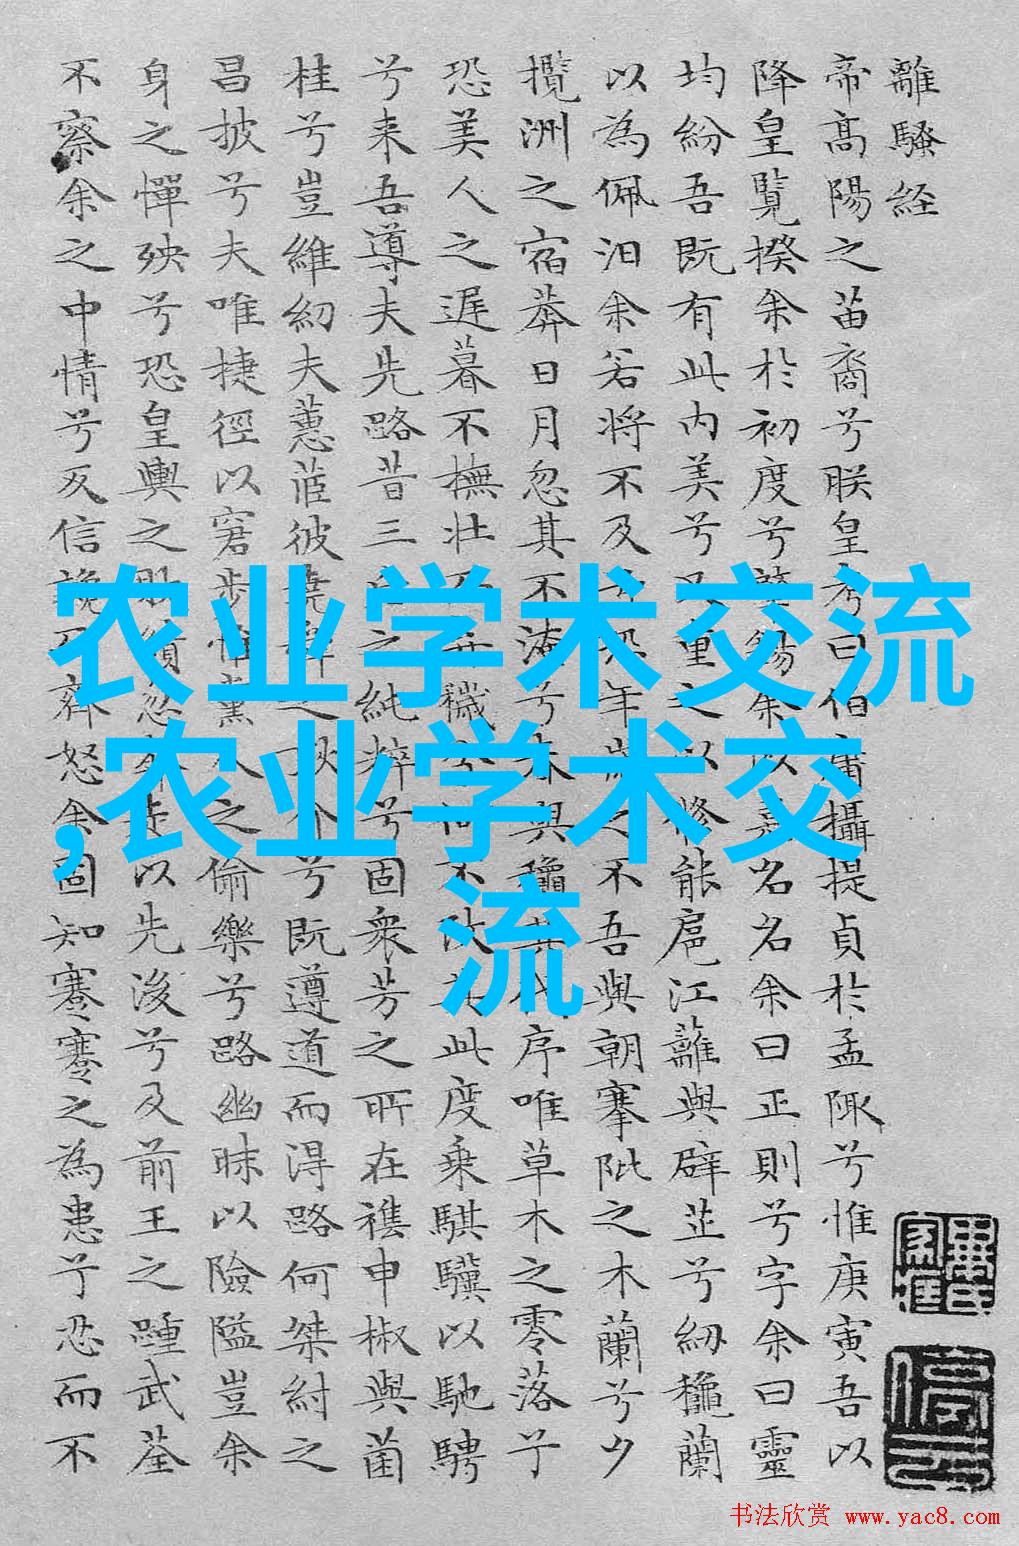 離騷経
帝高陽之苗裔兮朕皇考曰伯庸攝提貞於孟陬兮惟庚寅吾以
降皇覽揆余於初度兮肇錫余以嘉名名余曰正則兮字余曰靈
均紛吾既有此内美兮又重之以修能扈江蘺與辟芷兮紉穐蘭
以為佩汨余若將不及兮恐年歲之不吾與朝搴阰之木蘭兮夕
攬洲之宿莽日月忽其不淹兮春與穐其代序唯草木之零落兮
恐美人之遲暮不撫壯弃穢兮何不改其此度乗騏驥以馳騁
兮来吾導夫先路昔三之純粹兮固衆芳之所在雜申椒與菌
桂兮豈維紉夫蕙茝彼堯舜之耿介兮既遵道而得路何桀紂之
昌披兮夫唯捷徑以窘步惟黨人之偷樂兮路幽昧以險隘豈余
身之憚殃兮恐皇輿之敗績忽奔走以先後兮及前王之踵武荃
不察余之中情兮反信讒而齊怒余固知蹇蹇之為患兮忍而不
农业学术交流
,农业学术交
流
书法欣赏 www.yac8.com